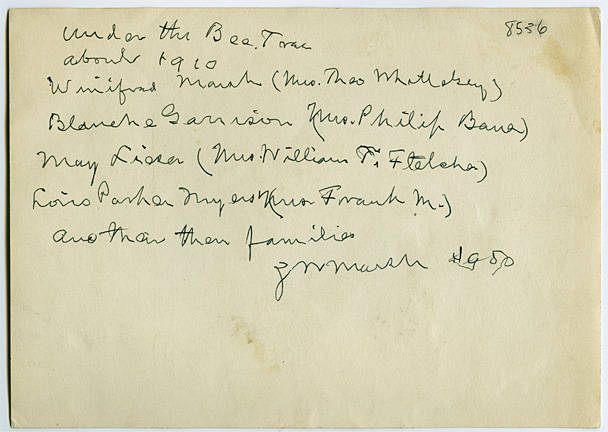 8536
under the Bee. Tree
about 1910
Winifred Marsh (Mrs. Theo Whittelsey)
Blanche Garrison (Mrs. Philip Bauer)
May Lieser (Mrs. William T. Fletcher)
Lois Parker Myers (Mrs. Frank M.)
another their families
Marsh 1950